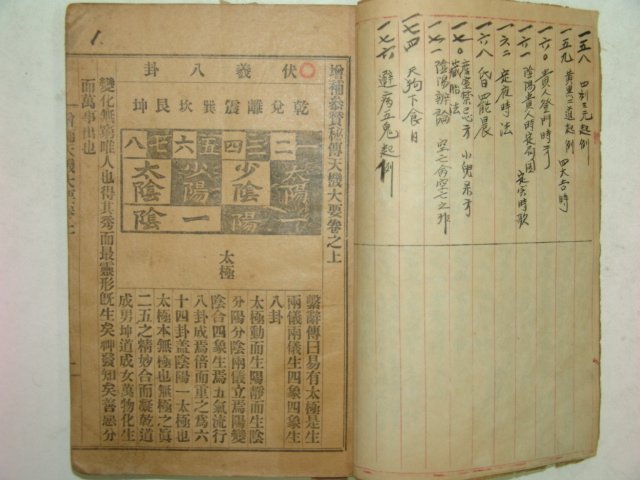 一五八 四利三元起例
一五九 黃黑二道起例 四大吉時
一六〇 貴人登門時
一六一 陰陽貴人時
一六二 定夜時法
一六八
一七〇
一七一 陰陽辨論
一七四 天狗下食日
一七六 避病五鬼起例
1.
增補參贊秘傳天機大要卷之上
伏羲八卦
乾兌離震巽坎艮坤
一二三四五六七八
太陽少陰少陽太陰
陽一陰
太極
繫辭傳曰易有太極是生
兩儀兩儀生四象四象生
八卦
太極動而生陽靜而生陰
分陽分陰兩儀立焉陽變
陰合四象生焉五氣流行
八卦成焉倍而重之爲六
十四卦蓋陰陽一太極也
太極本無極也無極之眞
二五之精妙合而凝乾道
成男坤道成女萬物化生
變化無窮唯人也得其秀而最靈形旣生矣神發知矣善惡分
而萬事出也